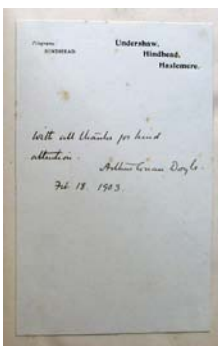 Telegrams:
HINDHEAD.
Undershaw,
Hindhead,
Haslemere.
With all thanks for kind
attention.
Arthur Conan Doyle.
Feb 18. 1903.